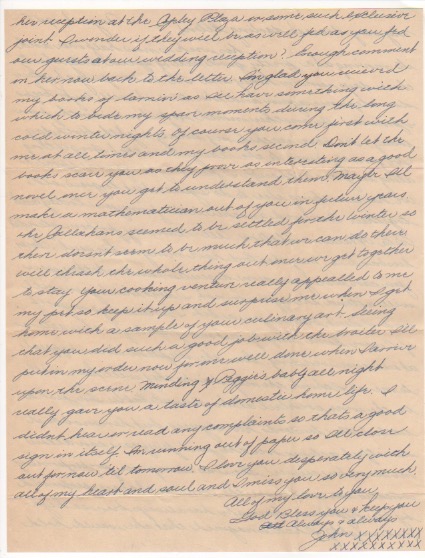 her reception at the Copley Plaza or some such exclusive
joint. I wonder if they will be as well fed as you fed
our guests at our wedding reception? Enough comment
on her now back to the letter. I'm glad you received
my books of learnin' as I'll have something with
which to bide my spare moments during the long
cold winter nights. Of course you come first with
me at all times and my books second. Don't let the
books scare you as they prove as interesting as a good
novel once you get to understand them. Maybe I'll
make a mathematician out of you in future years.
The Callahans seemed to be settled for the winter so
there doesn't seem to be much that we can do there
will thrash the whole thing out once we get together
to stay. Your cooking venture really appealed to me
my pet so keep it up and surprise me when I get
home with a sample of your culinary art. Seeing
that you did such a good job with the broiler I'll
put in my order now for one well done when I arrive
upon the scene. Minding Peggie's baby all night
really gave you a taste of domestic home life. I
didn't hear or read any complaints so that's a good
sign in itself. I'm running out of paper so I'll close
out for now 'til tomorrow. I love you desperately with
all of my heart and soul and I miss you so very much.
All of my love to you,
God Bless you & keep you
Always & always
John XXXXXXXX
XXXXXXXXX